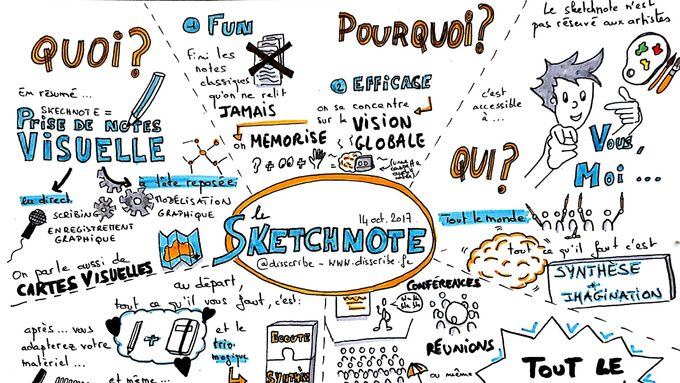 QUOI?
En résumé...
SKECHNOTE =
PRISE DE NOTES
VISUELLE
En direct
SCRIBING
ENREGISTREMENT
GRAPHIQUE
à tête reposée
MODÉLISATION
GRAPHIQUE
On parle aussi de
CARTES VISUELLES
POURQUOI?
1 FUN
Fini les
notes
classiques
qu'on ne relit
JAMAIS
2 EFFICACE
on se concentre
sur la VISION
GLOBALE
on MÉMORISE
Le sketchnote n'est
pas réservé aux artistes
c'est
accessible
à ...
QUI?
Vous,
Moi ...
Tout le monde
tout ce qu'il faut c'est
SYNTHÈSE
+
IMAGINATION
le
SKETCHNOTE
14 oct. 2017
@disscribe - www.disscribe.fr
au départ,
tout ce qu'il vous faut, c'est:
+
après ... vous
adapterez votre
matériel ...
et même ...
et le
trio
magique
ECOUTE
SYNTHÈSE
CONFÉRENCES
Bla Bla
Bla Bla
RÉUNIONS
ou même
TOUT LE